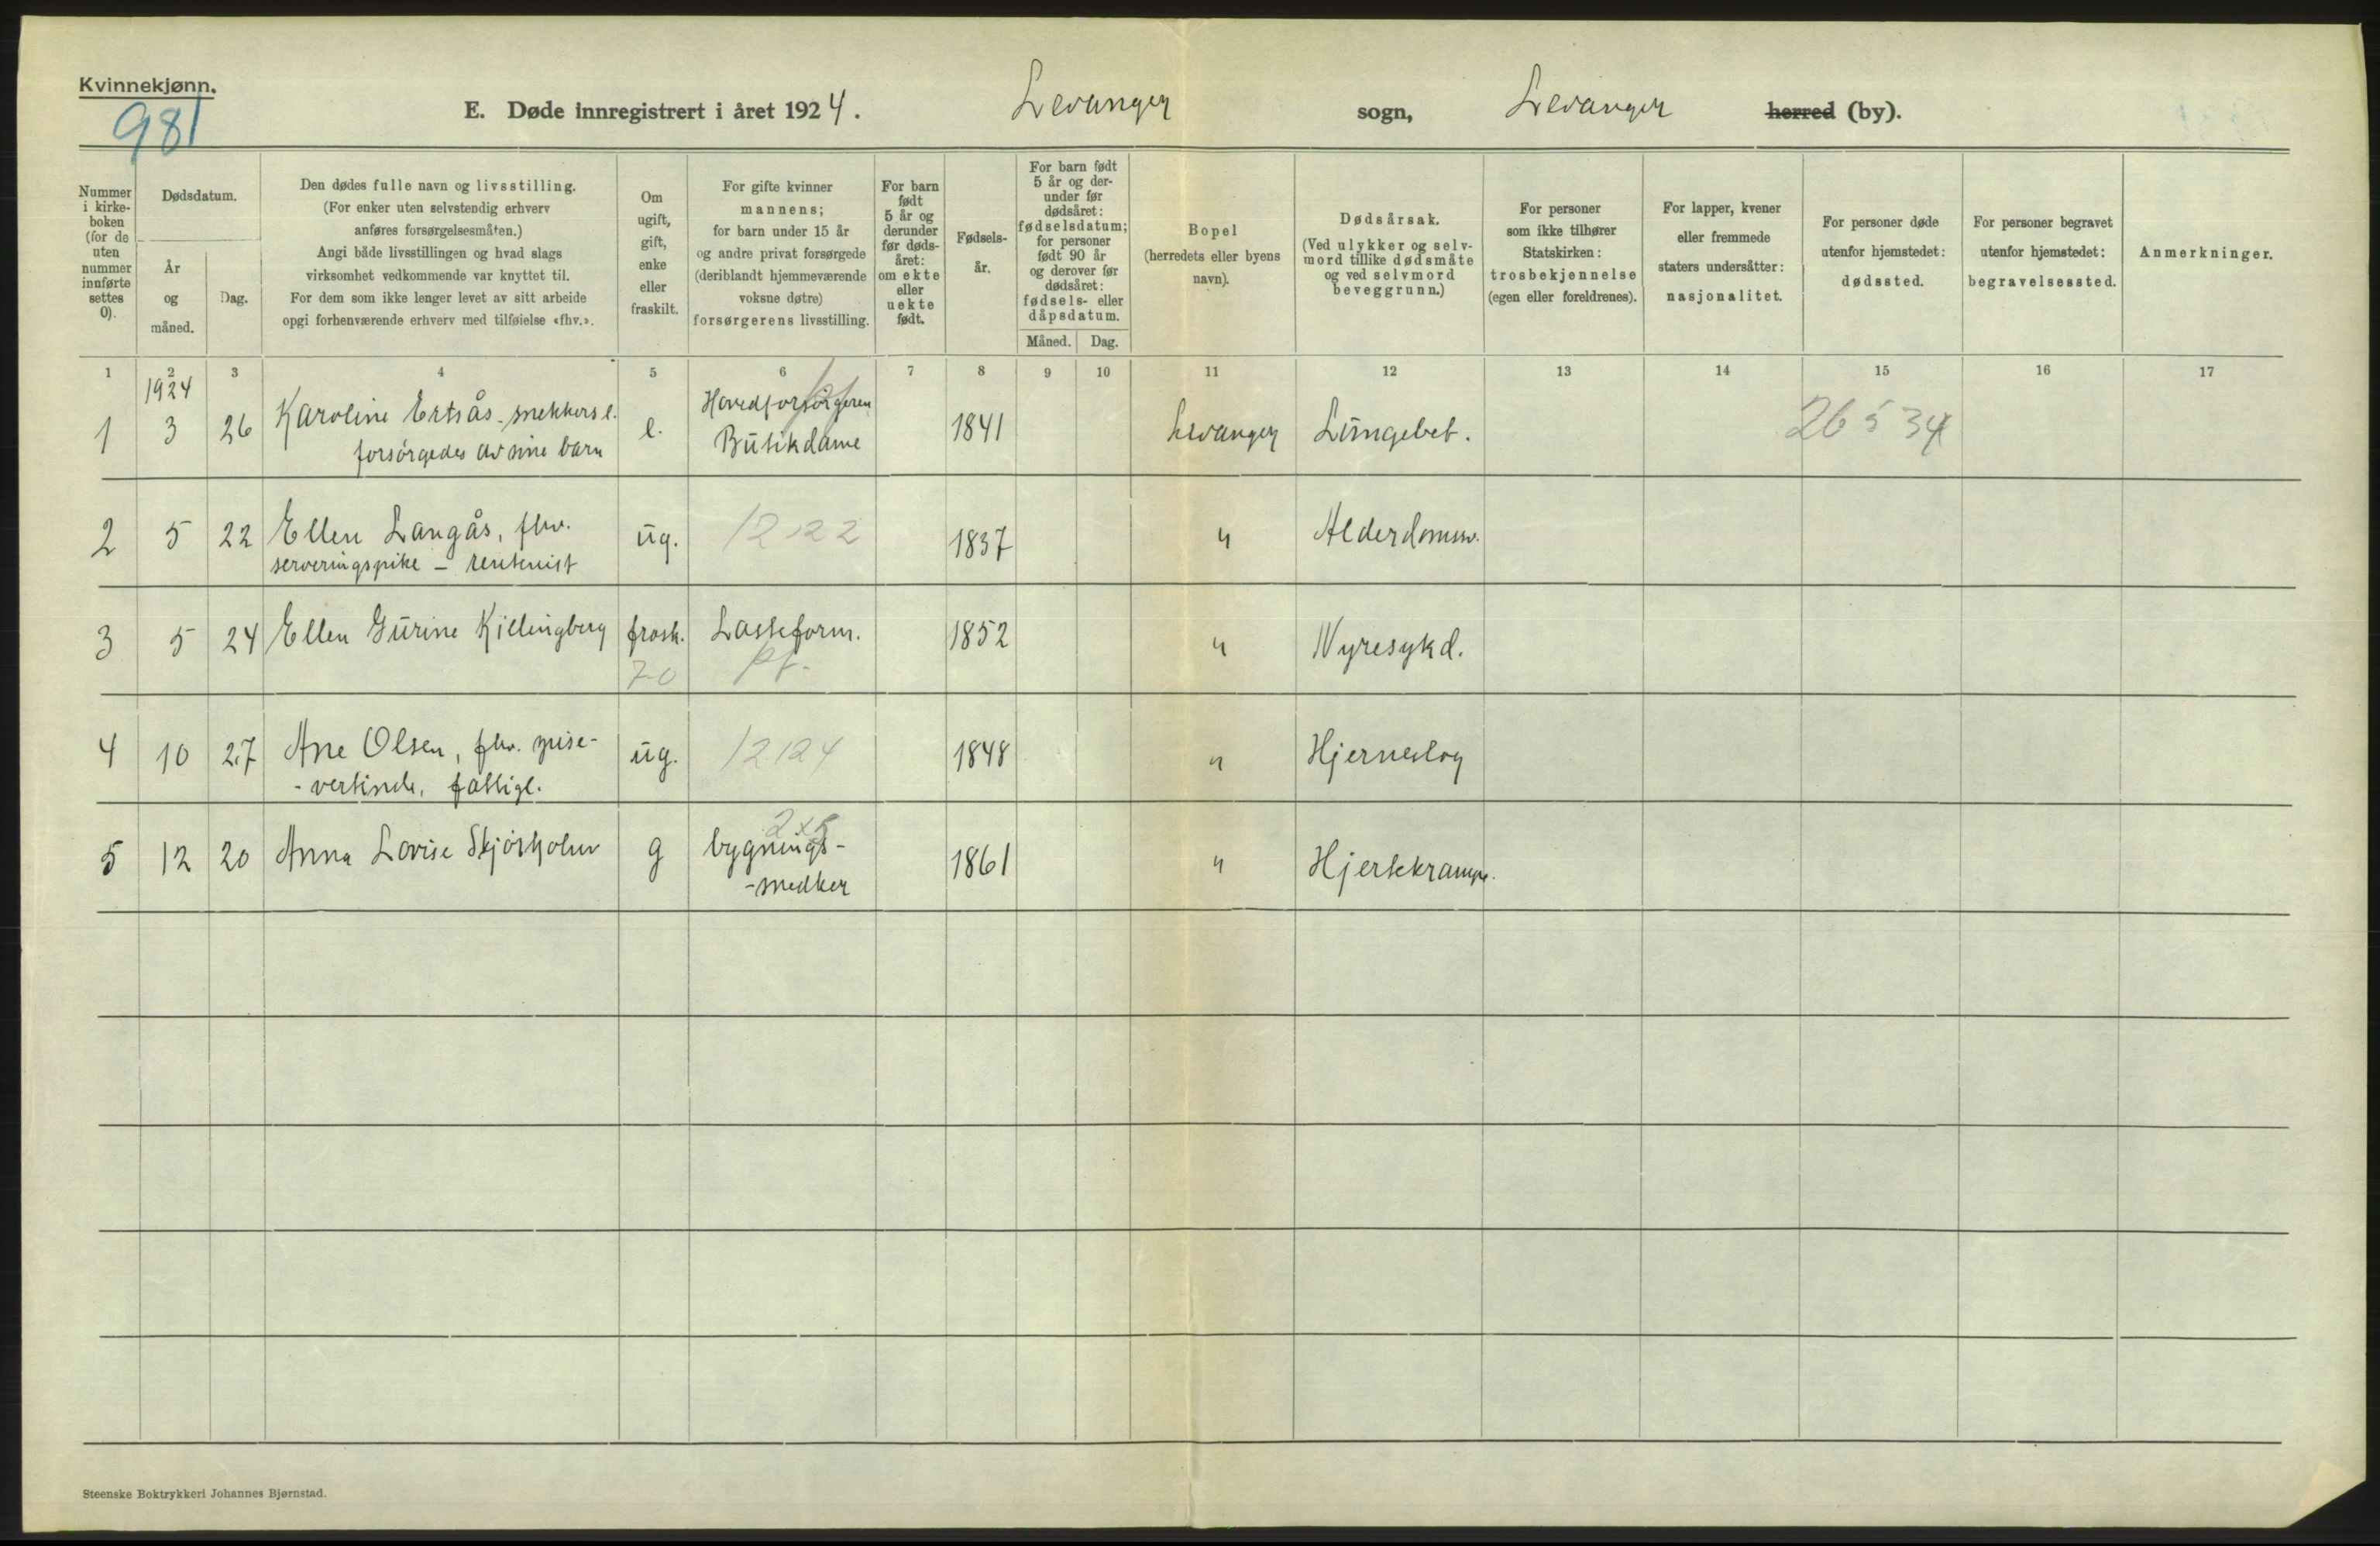 Kvinnekjønn.
981
E. Døde innregistrert i året 1924. Levanger sogn, Levanger herred (by).
Nummer i kirke-boken (for de uten nummer innførte settes 0).
Dødsdatum.
År og måned.
Dag.
Den dødes fulle navn og livsstilling.
(For enker uten selvstendig erhverv
anføres forsørgelsesmåten.)
Angi både livsstillingen og hvad slags
virksomhet vedkommende var knyttet til.
For dem som ikke lenger levet av sitt arbeide
opgi forhenværende erhverv med tilføielse «fhv.».
Om ugift, gift, enke eller fraskilt.
For gifte kvinner
mannens;
for barn under 15 år
og andre privat forsørgede
(deriblandt hjemmeværende
voksne døtre)
forsørgerens livsstilling.
For barn født 5 år og derunder før døds-året: om ekte eller uekte født.
Fødsels-år.
For barn født 5 år og der-under før dødsåret: fødselsdatum; for personer født 90 år og derover før dødsåret: fødsels- eller dåpsdatum.
Måned. Dag.
Bopel
(herredets eller byens
navn).
Dødsårsak.
(Ved ulykker og selv-
mord tillike dødsmåte
og ved selvmord
beveggrunn.)
For personer
som ikke tilhører
Statskirken:
trosbekjennelse
(egen eller foreldrenes).
For lapper, kvener
eller fremmede
staters undersåtter:
nasjonalitet.
For personer døde
utenfor hjemstedet:
dødssted.
For personer begravet
utenfor hjemstedet:
begravelsessted.
Anmerkninger.
1 2 3 4 5 6 7 8 9 10 11 12 13 14 15 16 17
1924
1 3 26 Karoline Ertsås - snekkers e. e. Hovedforsörgeren 1841 Levanger Lungebet. 26534
forsörgedes av sine barn Butikdame
2 5 22 Ellen Langås, fhv. ug. 12 22 1837 " Alderdomssv.
serveringspike - rentenist
3 5 24 Ellen Gurine Killingberg frask. Lasseform. 1852 " Nyresykd.
70 pf.
4 10 27 Ane Olsen, fhv. spise- ug. 12124 1848 " Hjerneslag
-vertinde, fattigl.
5 12 20 Anna Lovise g bygnings- 1861 " Hjertekrampe.
-snedker
Steenske Boktrykkeri Johannes Bjørnstad.